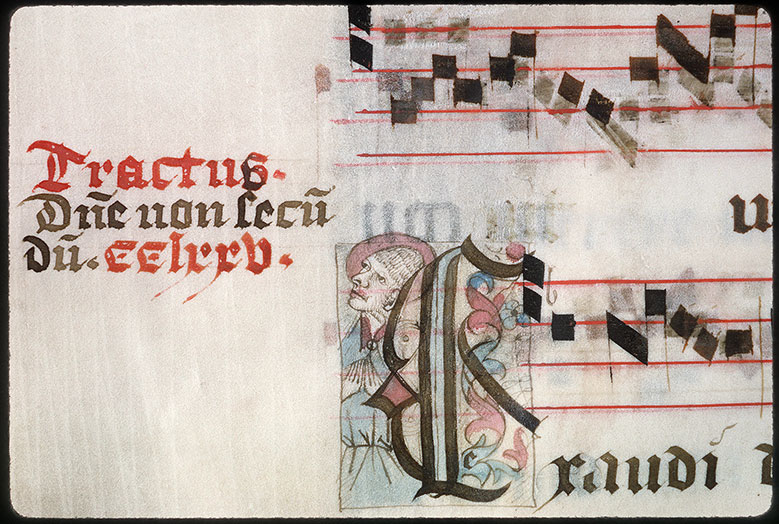 Tractus.
Dn̄e non secū
dū. CClxxv.
Exaudi